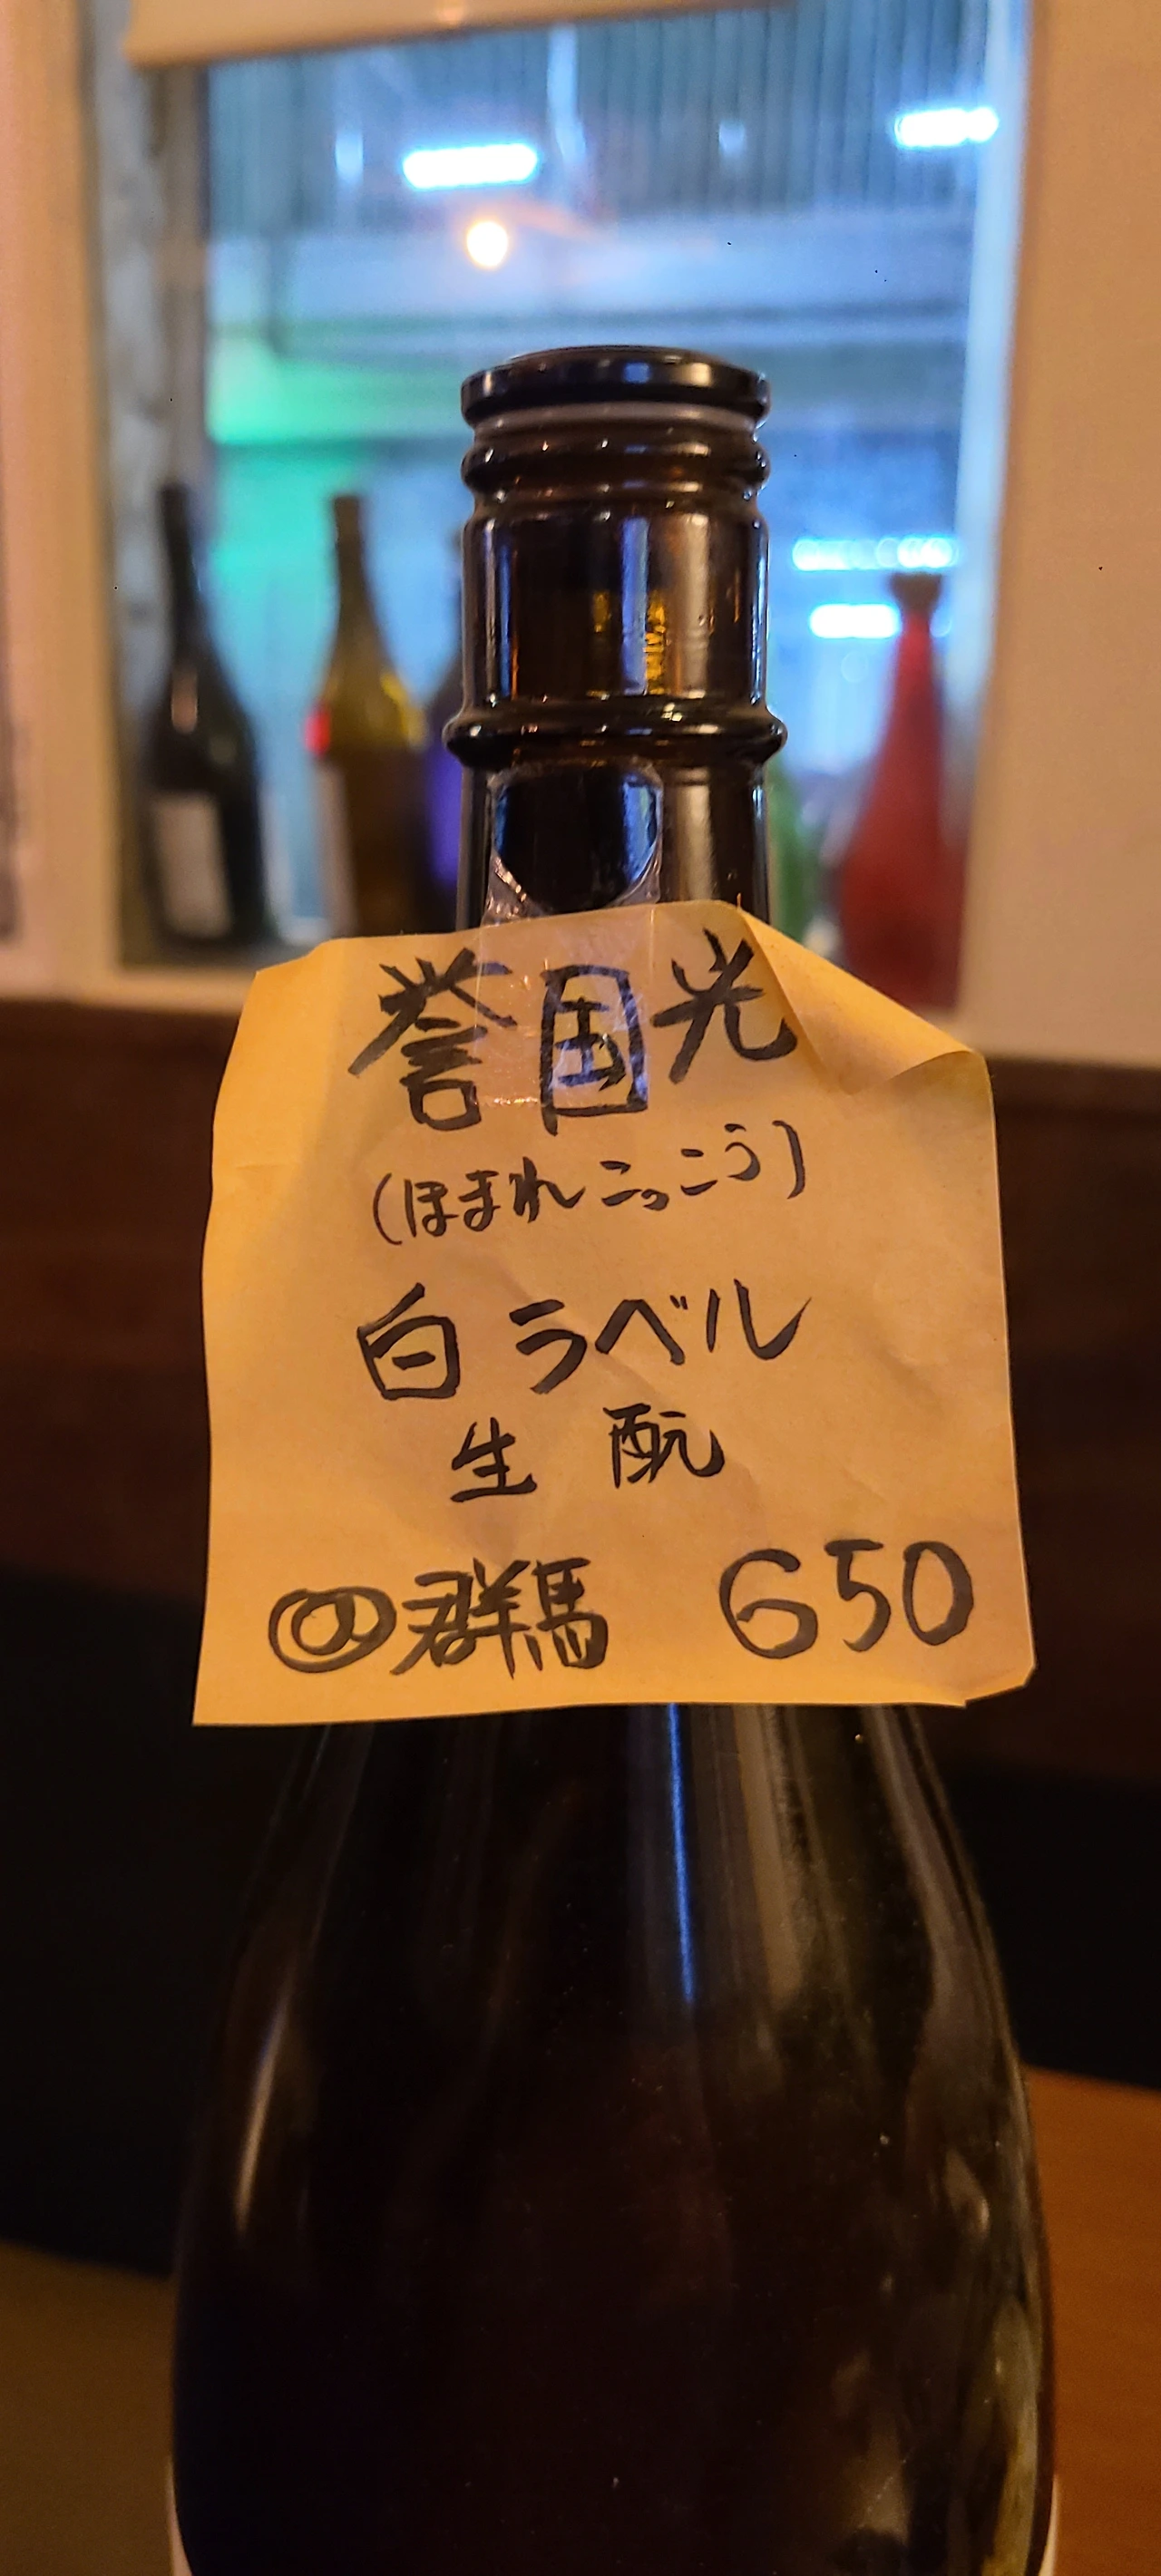 誉国光
(ほまれこっこう)
白ラベル
生酛
◎群馬 650